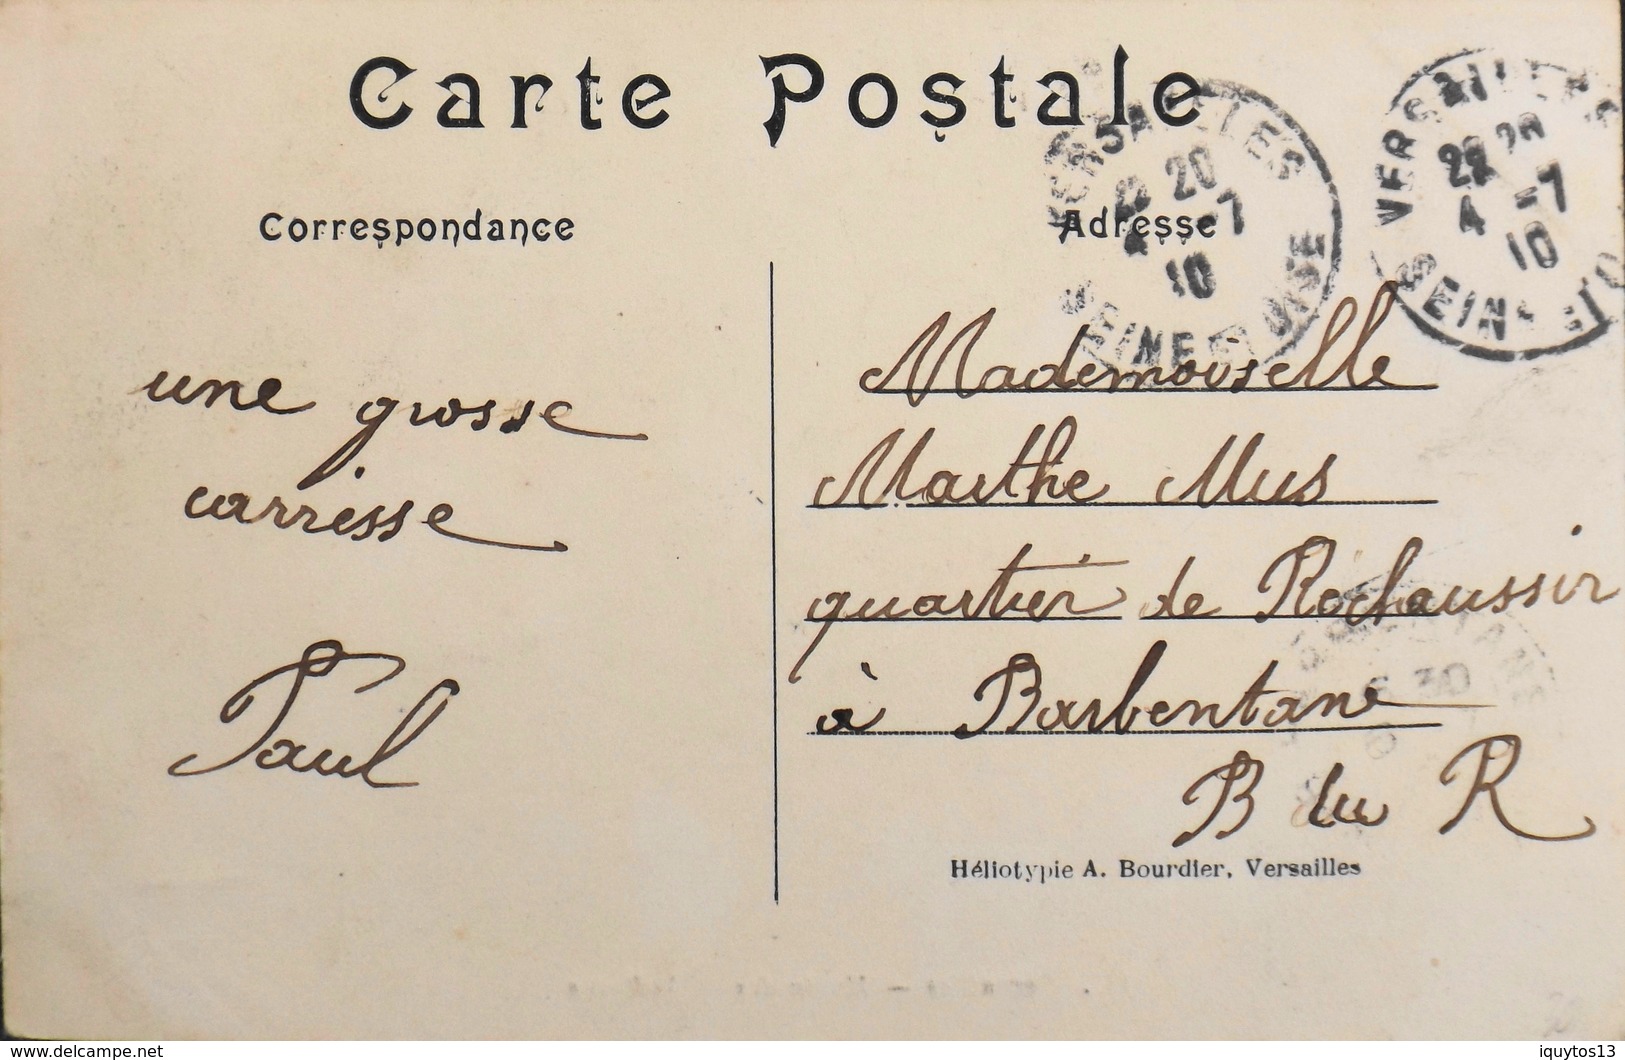 Carte Postale
Correspondance
Adresse
VERSAILLES
22 20
4 -7
10
SEINE ET OISE
VERSAILLES
22 20
4 -7
10
SEINE ET O
une grosse
carresse
Paul
Mademoiselle
Marthe Mus
quartier de Rochaussir
à Barbentane
B du R
Héliotypie A. Bourdier, Versailles
Delcampe.net
iquytos13